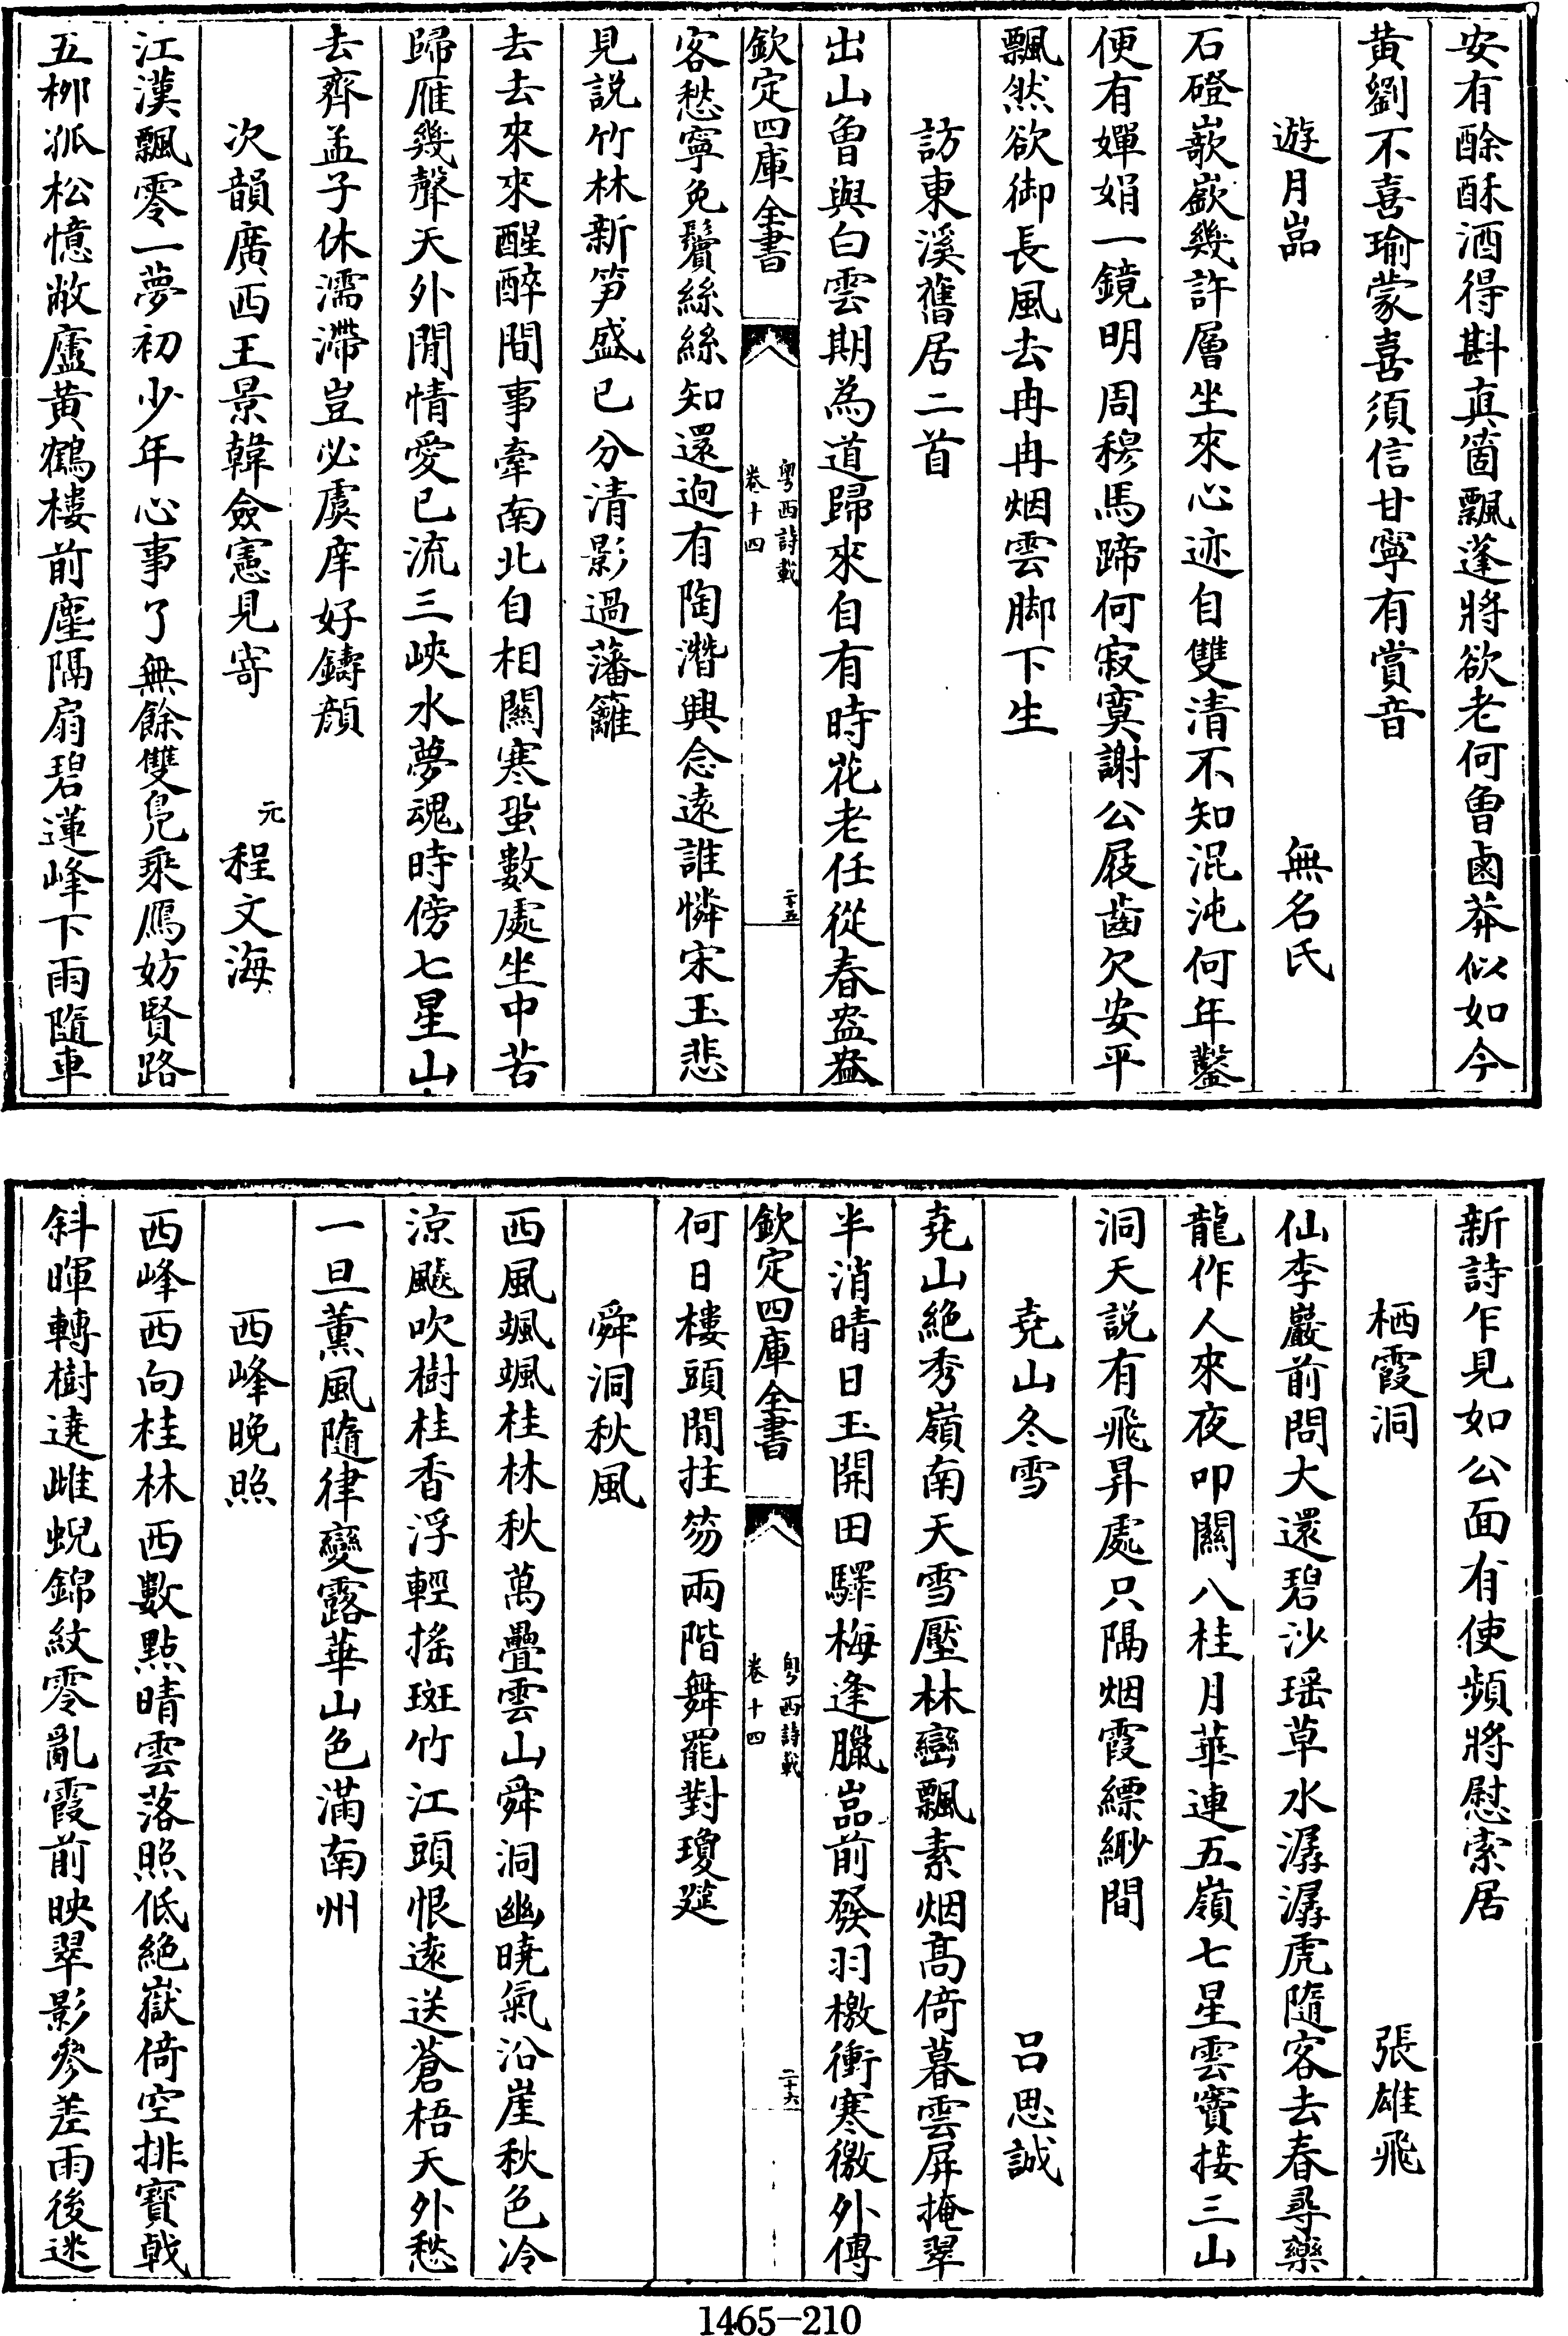 安有酴酥酒得斟真箇飄蓬將欲老何曾鹵莽似如今
黄劉不喜瑜蒙喜須信甘寧有賞音
遊月嵓
無名氏
石磴嶔嶔幾許層坐來心迹自雙清不知混沌何年鑿
便有嬋娟一鏡明周穆馬蹄何寂寞謝公屐齒欠安平
飄然欲御長風去冉冉烟雲脚下生
訪東溪舊居二首
出山曾與白雲期為道歸來自有時花老任從春盎盎
欽定四庫全書
粤西詩載
卷十四
二十五
客愁寧免鬢絲絲知還逈有陶潛興念遠誰憐宋玉悲
見説竹林新笋盛已分清影過藩籬
去去來來醒醉間事牽南北自相關寒蛩數處坐中苦
歸雁幾聲天外閒情愛已流三峽水夢魂時傍七星山
去齊孟子休濡滯豈必虞庠好鑄顔
次韻廣西王景韓僉憲見寄
元
程文海
江漢飄零一夢初少年心事了無餘雙鳧乘鴈妨賢路
五栁孤松憶敝廬黄鶴樓前塵隔扇碧蓮峰下雨隨車
新詩乍見如公面有使頻將慰索居
栖霞洞
張雄飛
仙李巖前問大還碧沙瑶草水潺潺虎隨客去春尋藥
龍作人來夜叩關八桂月華連五嶺七星雲竇接三山
洞天説有飛昇處只隔烟霞縹緲間
尭山冬雪
吕思誠
尭山絶秀嶺南天雪壓林巒飄素烟髙倚暮雲屏掩翠
半消晴日玉開田驛梅逢臘嵓前發羽檄衝寒徼外傳
欽定四庫全書
粤西詩載
卷十四
二十六
何日樓頭閒拄笏兩階舞罷對瓊筵
舜洞秋風
西風颯颯桂林秋萬疊雲山舜洞幽曉氣沿崖秋色冷
涼飈吹樹桂香浮輕搖斑竹江頭恨遠送蒼梧天外愁
一旦薰風隨律變露華山色滿南州
西峰晚照
西峰西向桂林西數點晴雲落照低絶嶽倚空排寳戟
斜暉轉樹遶雌蜺錦紋零亂霞前映翠影參差雨後迷
1465-210